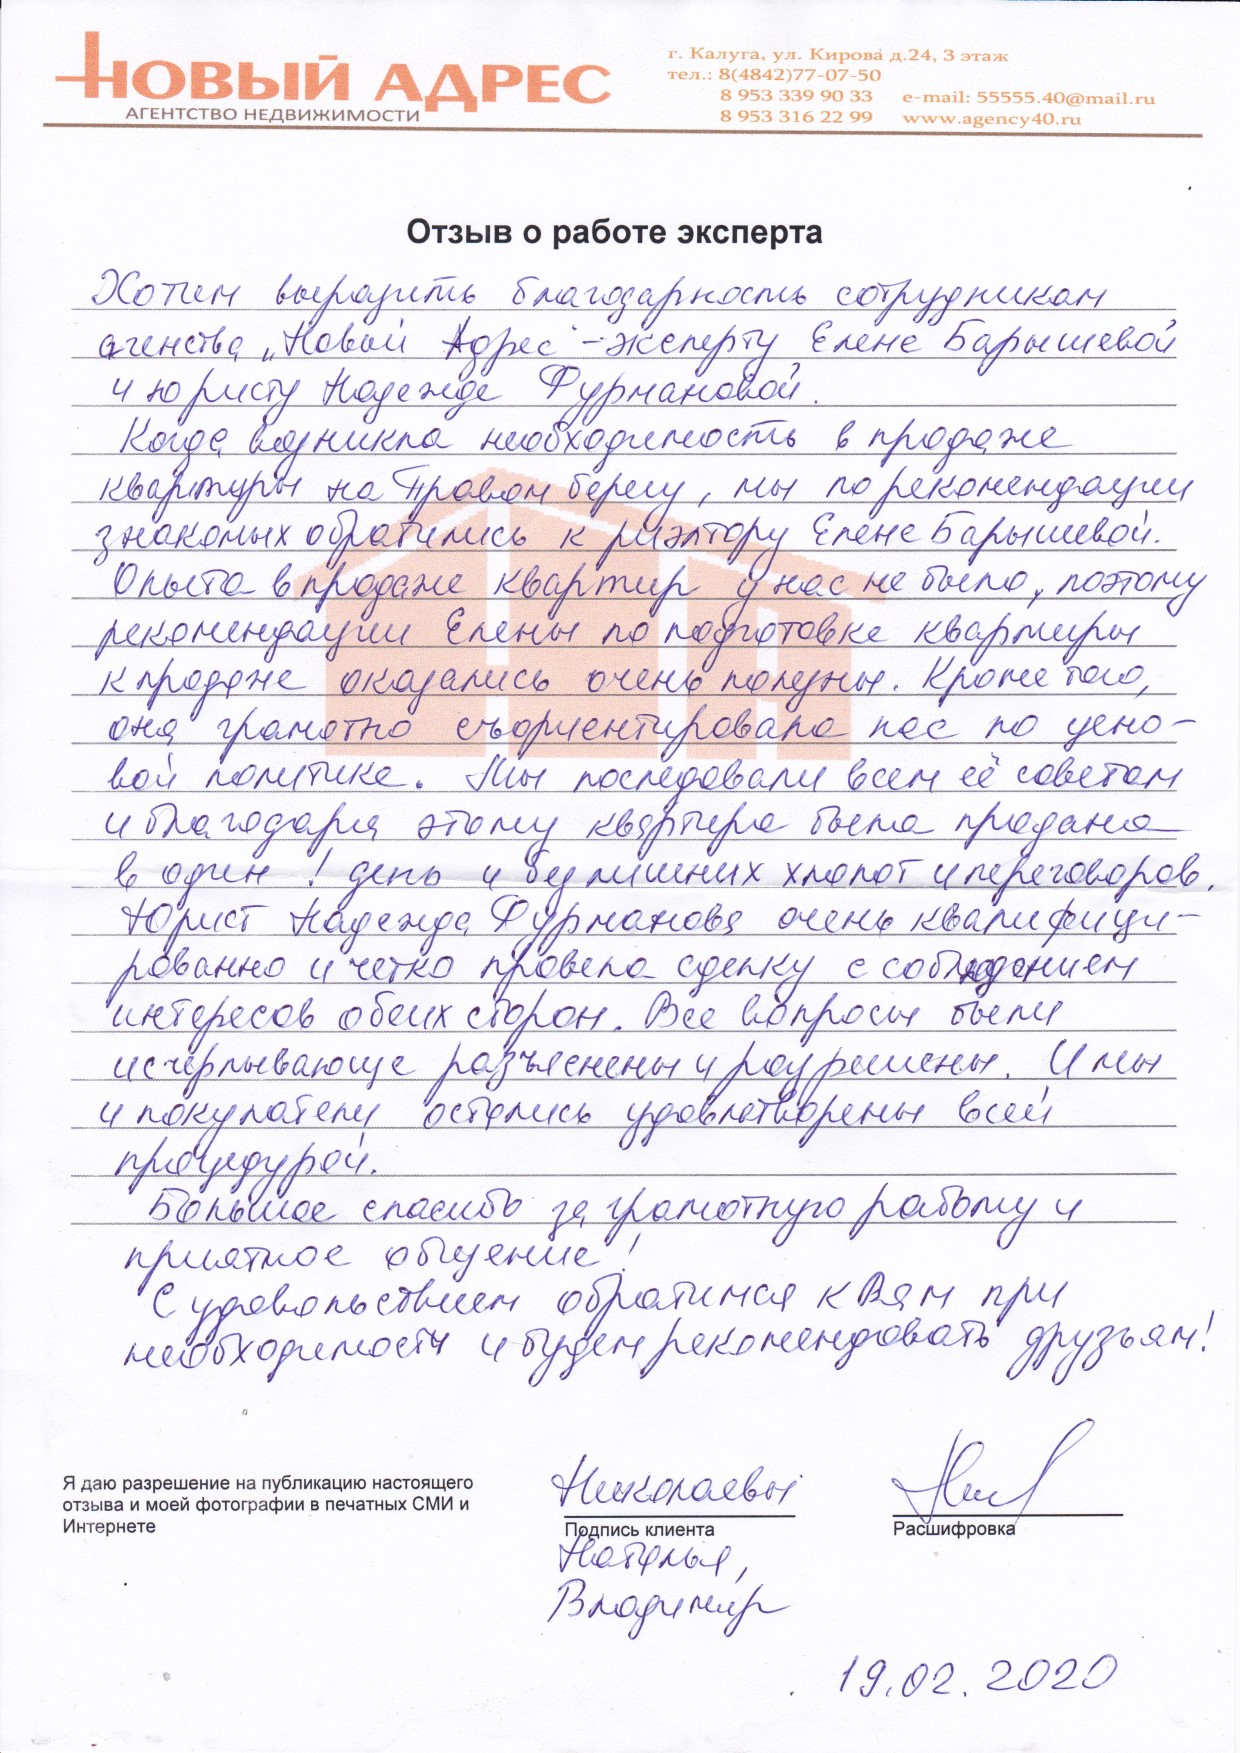 НОВЫЙ АДРЕС
АГЕНТСТВО НЕДВИЖИМОСТИ
г. Калуга, ул. Кирова д.24, 3 этаж
тел.: 8(4842)77-07-50
8 953 339 90 33 e-mail: 55555.40@mail.ru
8 953 316 22 99 www.agency40.ru
Отзыв о работе эксперта
Хотим выразить благодарность сотрудникам
агенства „Новый Адрес" - эксперту Елене Барышевой
и юристу Надежде Фурмановой.
Когда возникла необходимость в продаже
квартиры на Правом берегу, мы по рекомендации
знакомых обратились к риэлтору Елене Барышевой.
Опыта в продаже квартир у нас не было, поэтому
рекомендации Елены по подготовке квартиры
к продаже оказались очень полезны. Кроме того,
она грамотно съориентировала нас по цено-
вой политике. Мы последовали всем её советам
и благодаря этому квартира была продана
в один! день и без лишних хлопот и переговоров.
Юрист Надежда Фурманова очень квалифици-
рованно и четко провела сделку с соблюдением
интересов обеих сторон. Все вопросы были
исчерпывающе разъяснены и разрешены. И мы
и покупатели остались удовлетворены всей
процедурой.
Большое спасибо за грамотную работу и
приятное общение!
С удовольствием обратимся к Вам при
необходимости и будем рекомендовать друзьям!
Я даю разрешение на публикацию настоящего
отзыва и моей фотографии в печатных СМИ и
Интернете
Николаевы
Подпись клиента
Расшифровка
Наталья,
Владимир
19.02.2020